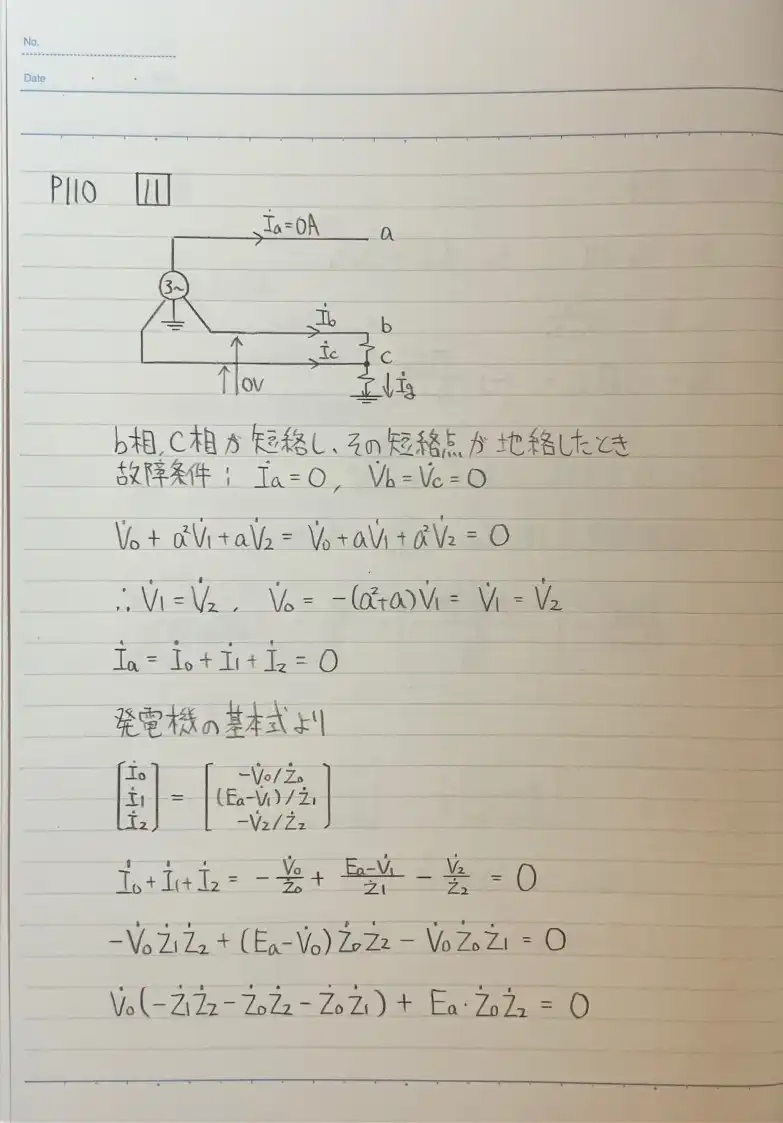 No.
Date
P110 11
İa=0A a
3~
İb b
İc c
0V İg
b相,c相が短絡し、その短絡点が地絡したとき
故障条件; İa=0, V̇b=V̇c=0
V̇0+a²V̇1+aV̇2=V̇0+aV̇1+a²V̇2=0
∴V̇1=V̇2, V̇0=-(a²+a)V̇1=V̇1=V̇2
İa=İ0+İ1+İ2=0
発電機の基本式より
[İ0 İ1 İ2] = [-V̇0/Ż0 (Ea-V̇1)/Ż1 -V̇2/Ż2]
İ0+İ1+İ2=-V̇0/Ż0+(Ea-V̇1)/Ż1-V̇2/Ż2=0
-V̇0Ż1Ż2+(Ea-V̇0)Ż0Ż2-V̇0Ż0Ż1=0
V̇0(-Ż1Ż2-Ż0Ż2-Ż0Ż1)+Ea·Ż0Ż2=0